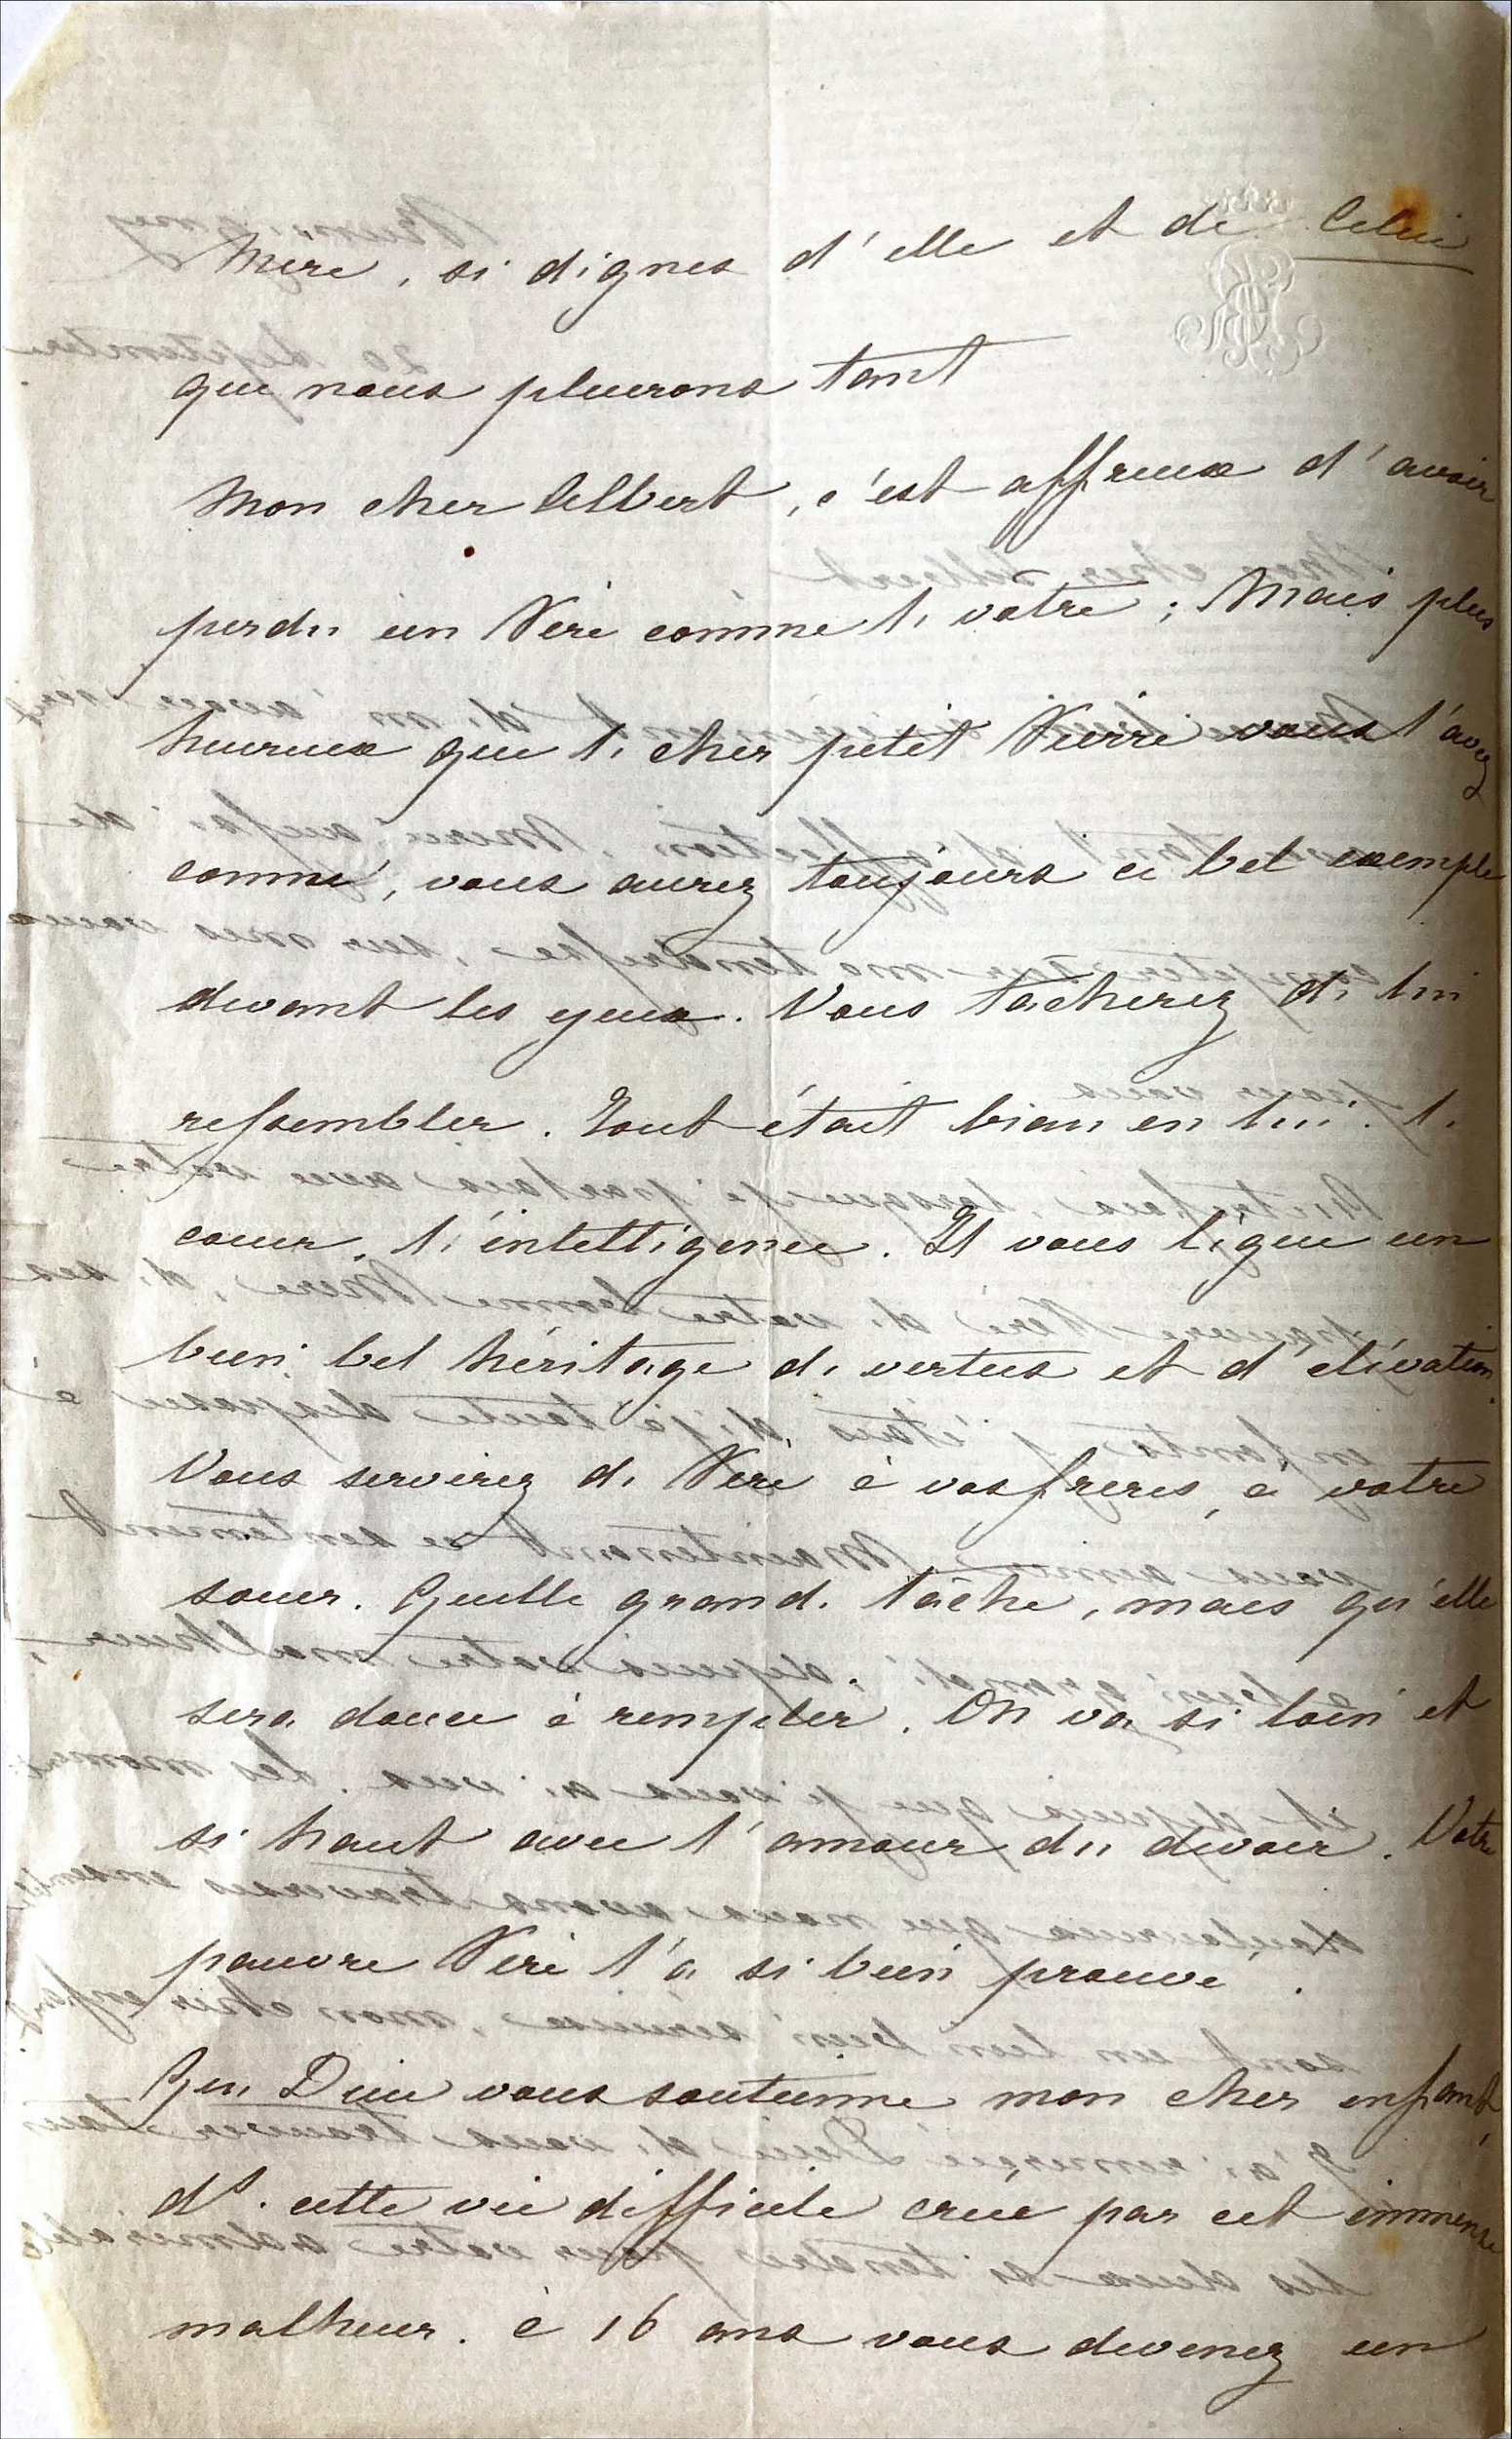 Mère, si dignes d'elle et de Celui
que nous pleurons tant
Mon cher Albert, c'est affreux d'avoir
perdu un Père comme le votre ; Mais plus
heureux que le cher petit Pierre vous l'avez
connu, vous aurez toujours ce bel exemple
devant les yeux. Vous tâcherez de lui
ressembler. Tout était bien en lui. le
coeur, l'intelligence. Il vous lègue un
bien bel héritage de vertus et d'élévation.
Vous servirez de Père à vos frères, à votre
soeur. Quelle grande tâche, mais qu'elle
sera douce à remplir. On va si loin et
si haut avec l'amour du devoir. Votre
pauvre Père l'a si bien prouvé.
Que Dieu vous soutienne mon cher enfant,
ds. cette vie difficile crée par cet immense
malheur. à 16 ans vous devenez un